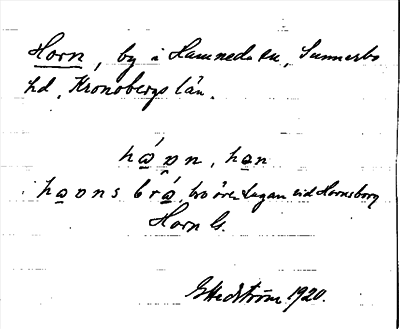 Horn, by i Hamneda sn, Sunnerbo
hd, Kronobergs län.
hǻɒn, han
i haɒns brǻ, bro över Lagan vid Hornsborg
Horn G.
G Hedström 1920.